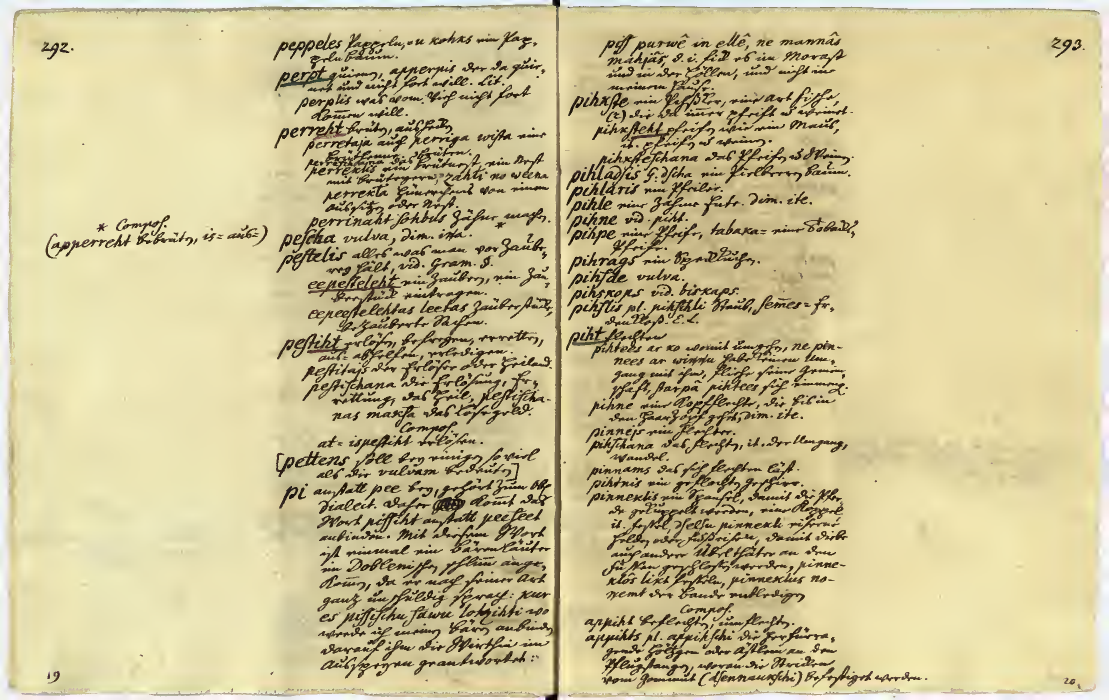 292.
peppeles Pappeln, -u kohks ein Pap-
peln baum.
perpt quinen, apperpis der da quie-
net und nicht fort will. Lit.
perplis was vom Vieh nicht fort
kommen will.
perreht brüten, aushecken
perretaja auch perriga wista eine
Bruthenne
perreklis ein Brutnest, ein Nest
mit Bruteyern, zahli no weena
perrekla Hünerchens von einem
aussitzen oder Nest.
perrinaht sohbus Zähne machen.
pescha vulva, dim. ina. *
pestelis alles was man vor Zaube-
rey hält, vid. Gram. §.
eepesteleht ein Zaubern, ein Zau-
berstück eintragen.
eepestelehtas leetas Zauberstücke,
bezauberte Sachen.
pestiht erlösen, befreyen, erretten,
aus- abhelfen, erledigen.
pestitajs der Erlöser oder Heiland.
pestischana die Erlösung, Er-
rettung, das Heil, pestischa-
nas maksa das Lösegeld.
Compos.
at- ispestiht erlösen.
[pettens soll bey einigen so viel
als die vulvam bedeuten]
pi anstatt pee bey, gehört zum
Dialect. Daher kommt das
Wort pissiht anstatt peeseet
anbinden. Mit diesem Wort
ist einmal ein Bärenläuter
im Doblenischen schlim ange-
komen, da er nach seiner Art
ganz unschuldig sprach: kur
es pissischu sawu lohzihti wo
werde ich meinen Bären anbinden
darauf ihm die Wirthin im
geantwortet:
* Compos.
(apperreht bebrüten, is= aus=)
19
293.
piss purwê in ellê, ne mannâs
mahjâs, d. i. fick es im Morast
und in der Höllen, und nicht in
meinem Hause.
pihkste ein Peissker, eine art Fische
(2) die da imer pfeift u weinet.
pihksteht pfeifen wie ein Maus,
it. pfeifen u weinen.
pihksteschana das Pfeifen u Weinen
pihladsis G. dscha ein Pielbeeren baum.
pihlaris ein Pfeiler.
pihle eine Zahme Ente. Dim. ite.
pihne vid. piht.
pihpe eine Pfeife, tabaka= eine Toback-
Pfeife.
pihrags ein Speckkuchen.
pihsde vulva.
pihskops vid. biskaps.
pihslis pl. pihschli Staub, semes= Er-
denkloß. E. L.
piht flechten
pihtees ar ko womit umgehen, ne pin-
nees ar winnu habe keinen Um-
gang mit ihm, fliehe seine Gemein-
schaft, starpâ pihtees sich einmeng.
pihne eine Kopfflechte, die bis in
den Haar Zopf geht, dim. ite.
pinnejs ein Flechter.
pihschana das Flechten, it. der Umgang,
Wandel.
pinnams das sich flechten läst.
pihtnis ein geflochten Geschirr.
pinneklis ein Spansel, damit die Pfer-
de gekuppelt werden, eine Koppel
it. Fessel, dselsu pinnekli eiserne
Felden oder Fußeisen, damit Diebe
auch andere Übelthäter an den
Füßen geschlossen werden, pinne-
klôs likt fesseln, pinneklus no-
nemt der Bande entledigen
Compos.
appiht beflechten, umflechten.
appihts pl. appihschi die herfürra-
gende Höltzgen oder Ästlein an den
Pflugstangen, woran die Stricken
vom Gemunt (dsennaukschi) befestiget werden.
20.